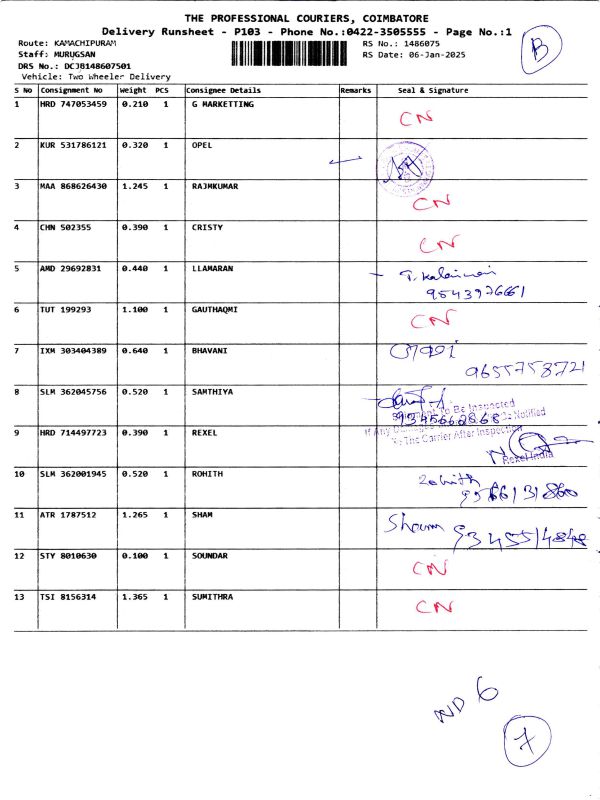 THE PROFESSIONAL COURIERS, COIMBATORE
Delivery Runsheet - P103 - Phone No.:0422-3505555 - Page No.:1
B
Route: KAMACHIPURAM
RS No.: 1486075
Staff: MURUGSAN
RS Date: 06-Jan-2025
DRS No.: DCJB148607501
Vehicle: Two Wheeler Delivery
S No Consignment No Weight PCS Consignee Details Remarks Seal & Signature
1 HRD 747053459 0.210 1 G MARKETTING CN
2 KUR 531786121 0.320 1 OPEL
3 MAA 868626430 1.245 1 RAJMKUMAR CN
4 CHN 502355 0.390 1 CRISTY CN
5 AMD 29692831 0.440 1 LLAMARAN
9543976661
6 TUT 199293 1.100 1 GAUTHAQMI CN
7 IXM 303404389 0.640 1 BHAVANI
9655758721
8 SLM 362045756 0.520 1 SAMTHIYA
To Be Inspected
Notified
To The Carrier After Inspection
9 HRD 714497723 0.390 1 REXEL
Rexel India
10 SLM 362001945 0.520 1 ROHITH
11 ATR 1787512 1.265 1 SHAM Sham
12 STY 8010630 0.100 1 SOUNDAR CN
13 TSI 8156314 1.365 1 SUMITHRA CN
ND 6
7